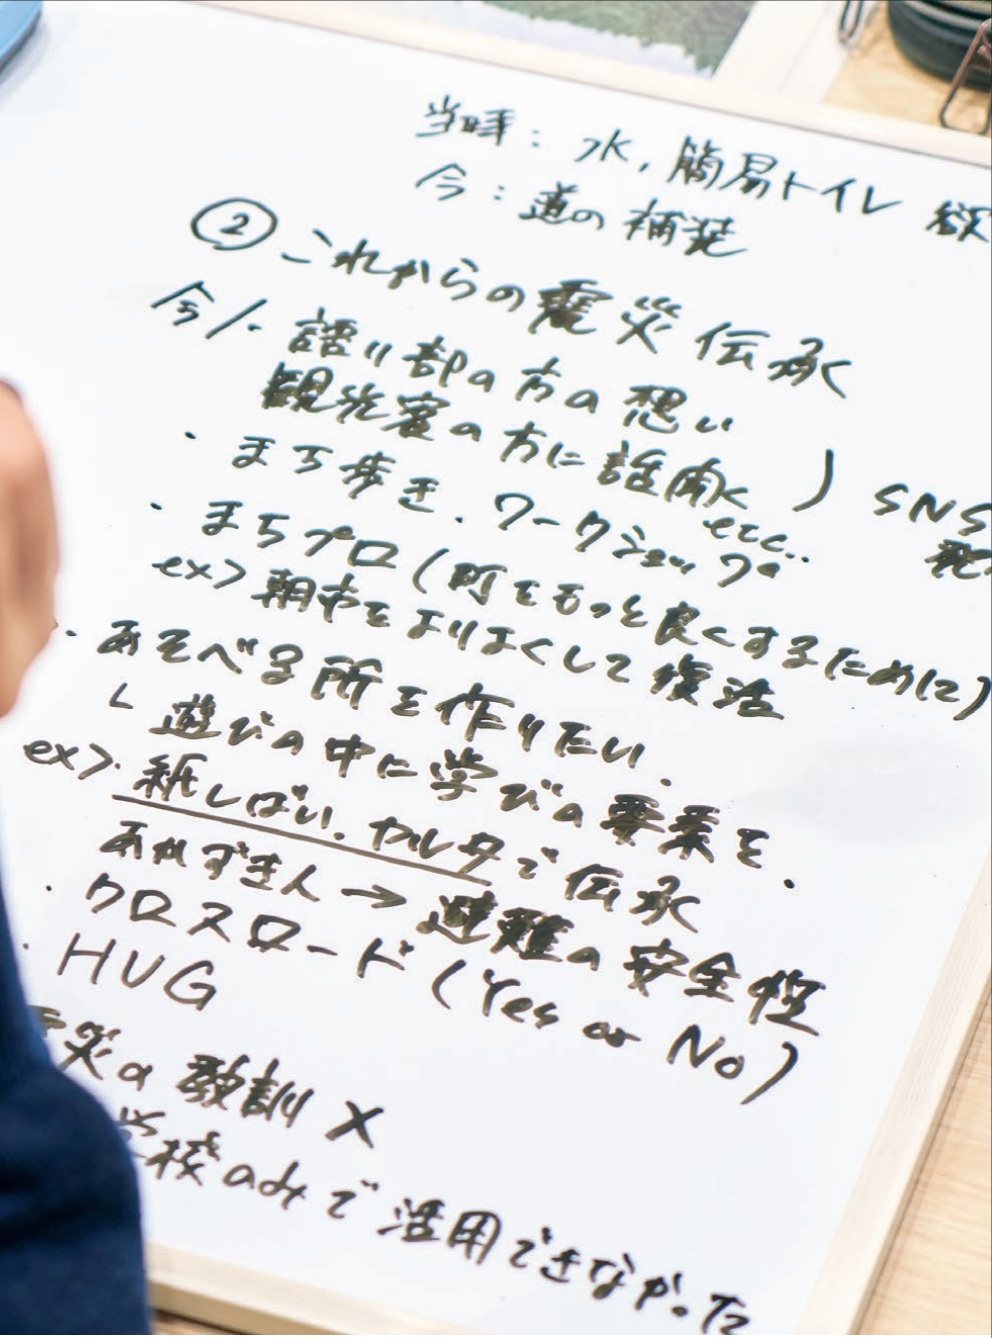 当時：水，簡易トイレ 欲
今：道の補装
② これからの震災伝承
今/・語り部の方の想い
観光客の方に話聞く ) SNS
・まち歩き．ワークショップ etc..
・まちプロ（町をもっと良くするために）
ex> 朝市をよりよくして復活
・あそべる所を作りたい．
└ 遊びの中に学びの要素を．
ex>・紙しばい．カルタで伝承
あかずきん→避難の安全性
・クロスロード（Yes or No）
・HUG
災の教訓 ×
学校のみで活用できなかった